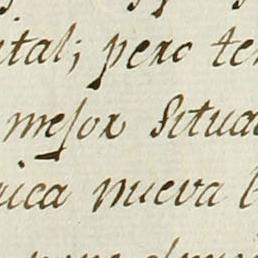 ital; pero te
mejor Situa
rica nueva